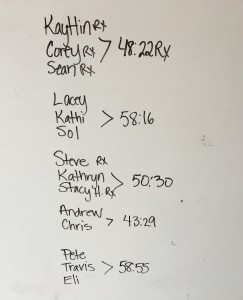 Kaytlin Rx
Corey Rx > 48:22 Rx
Sean Rx
Lacey
Kathi > 58:16
Sol
Steve Rx
Kathryn > 50:30
Stacy H. Rx
Andrew
Chris > 43:29
Pete
Travis > 58:55
Eli